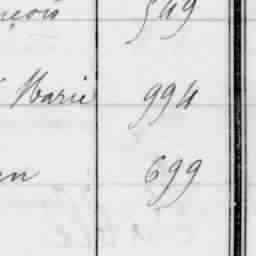 nçois 549
Marie 994
en 699